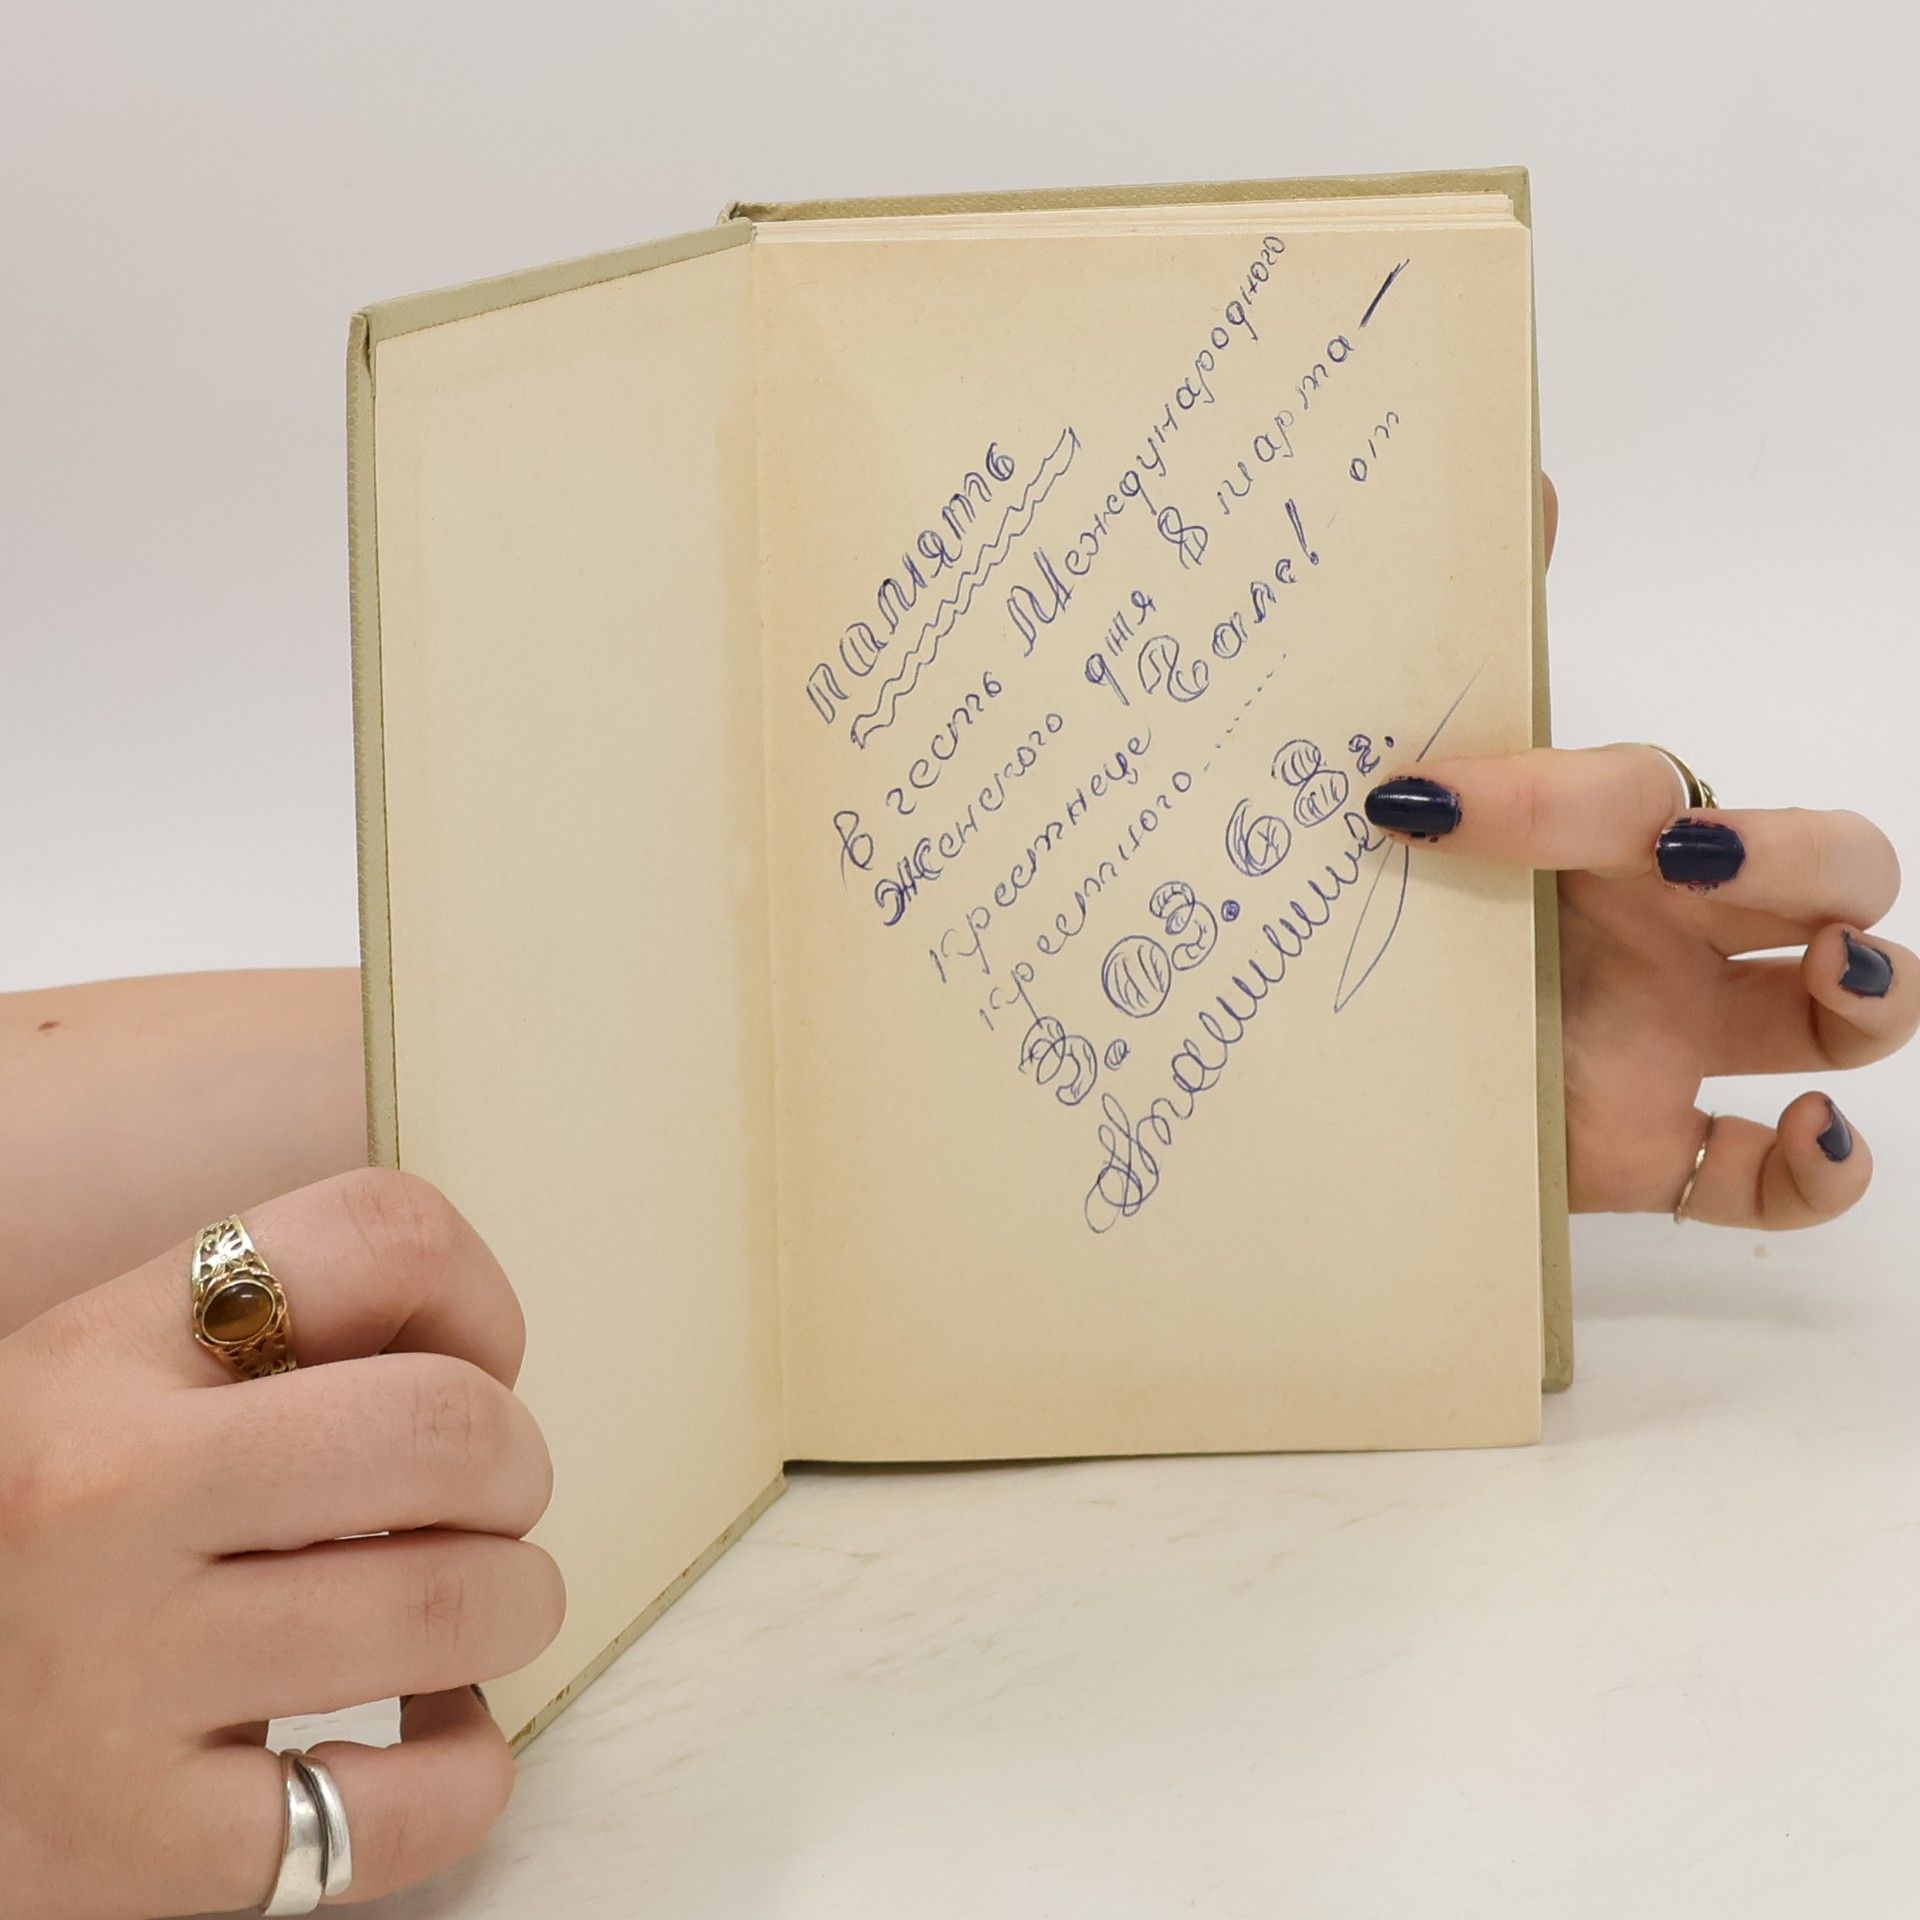 память
В честь Международного
женского дня 8 марта —
крестнице Вале! от
крестного .......
8. 03. 68 г.